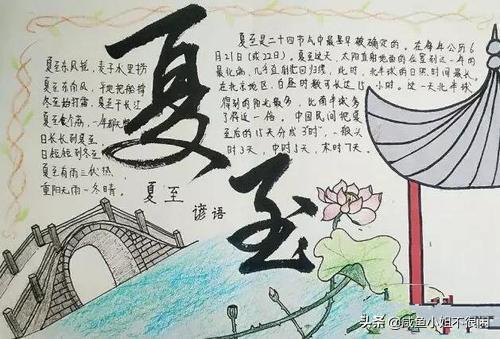 夏至
夏至东风摇,麦子水里捞
夏至东南风,于地把船撑
冬至始打霜,夏至干长江
夏至食个荔,一年都无
日长长到夏至
日短短到冬至
夏至有雨三伏热,
重阳无雨一冬晴。
夏至 谚语
夏至是二十四节气中最早被确定的。在每年公历
6月21日(或22日)。夏至这天,太阳直射地面的位置到达一年的
最北端,几乎直射北回归线,此时,北半球的日照时间最长,
在北方地区,白昼时数可长达15小时。这一天北半球
得到的阳光最多,比南半球多
了将近一倍。中国民间把夏
至后的15天分成3“时”,一般头
时3天,中时5天,末时7天。
头条 @咸鱼小姐不很闲